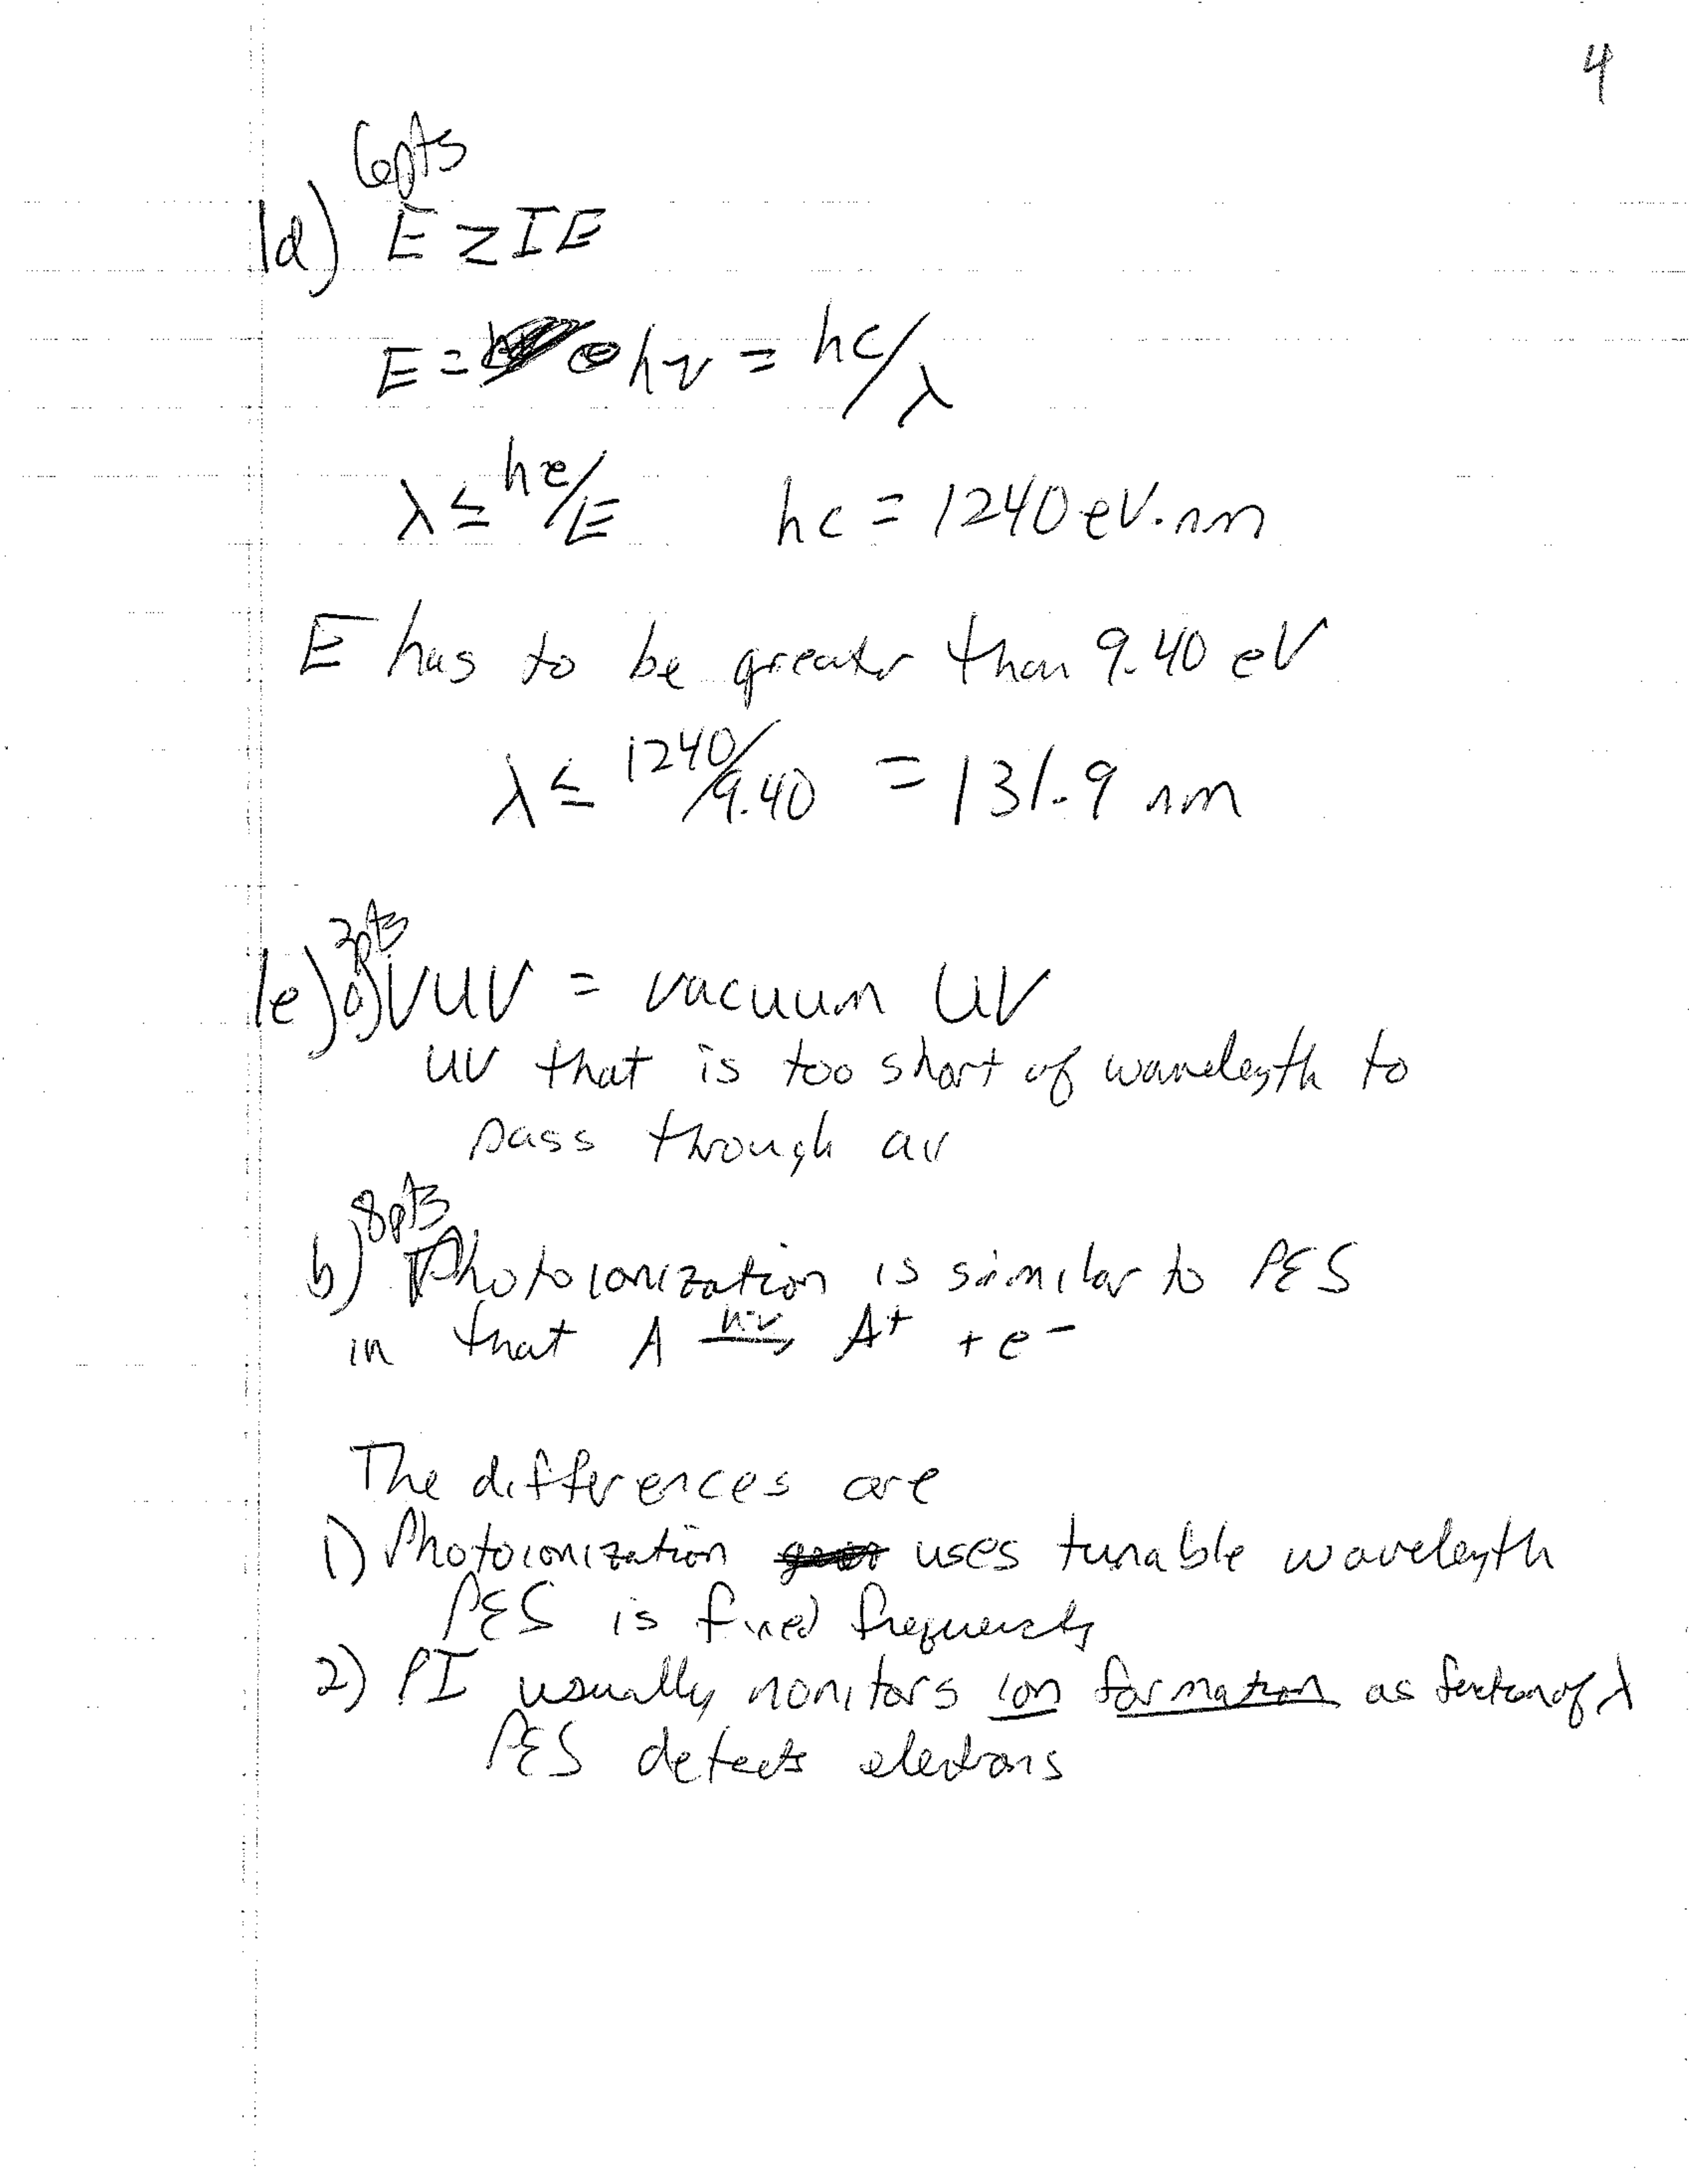 4
6pts
1d) E ≥ IE
E = hν = hc/λ
λ ≤ hc/E hc = 1240 eV·nm
E has to be greater than 9.40 eV
λ ≤ 1240/9.40 = 131.9 nm
3pts
1e) a) VUV = vacuum UV
UV that is too short of wavelength to
pass through air
8pts
b) Photoionization is similar to PES
in that A hν→ A+ + e-
The differences are
1) Photoionization uses tunable wavelength
PES is fixed frequency
2) PI usually monitors ion formation as function of λ
PES detects electrons